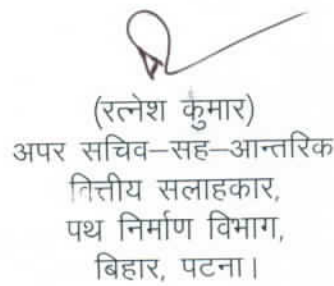 (रत्नेश कुमार)
अपर सचिव–सह–आन्तरिक
वित्तीय सलाहकार,
पथ निर्माण विभाग,
बिहार, पटना।